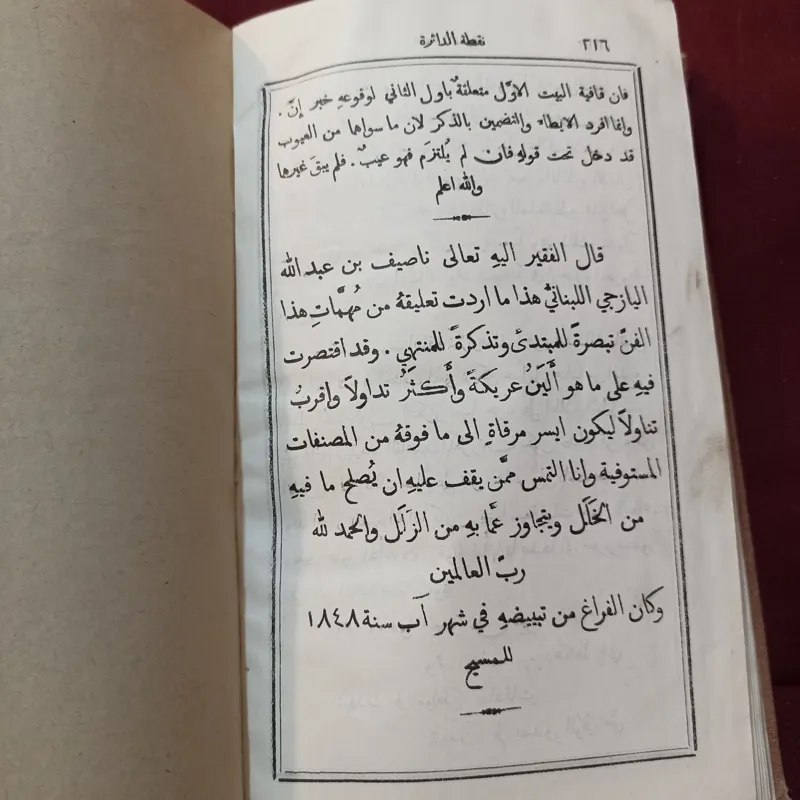 ٢١٦
نقطة الدائرة
فان قافية البيت الاوَّل متعلقةٌ باول الثاني لوقوعهِ خبر إنَّ .
وانما افرد الايطاء والتضمين بالذكر لان ما سواها من العيوب
قد دخل تحت قولهِ فان لم يُلتزَم فهو عيبٌ . فلم يبقَ غيرها
والله اعلم
قال الفقير اليهِ تعالى ناصيف بن عبد الله
اليازجي اللبنانيُّ هذا ما اردت تعليقهُ من مُهمَّاتِ هذا
الفنّ تبصرةً للمبتدئ وتذكرةً للمنتهي . وقد اقتصرت
فيهِ على ما هو أَليَنُ عريكةً وأَكثَرُ تداولاً واقربُ
تناولاً ليكون ايسر مرقاةٍ الى ما فوقهُ من المصنفات
المستوفية وانا التمس ممَّن يقف عليهِ ان يُصلح ما فيهِ
من الخَلَل ويتجاوز عمَّا بهِ من الزَلَل والحمد لله
ربّ العالمين
وكان الفراغ من تبييضهِ في شهر آب سنة ١٨٤٨
للمسيح